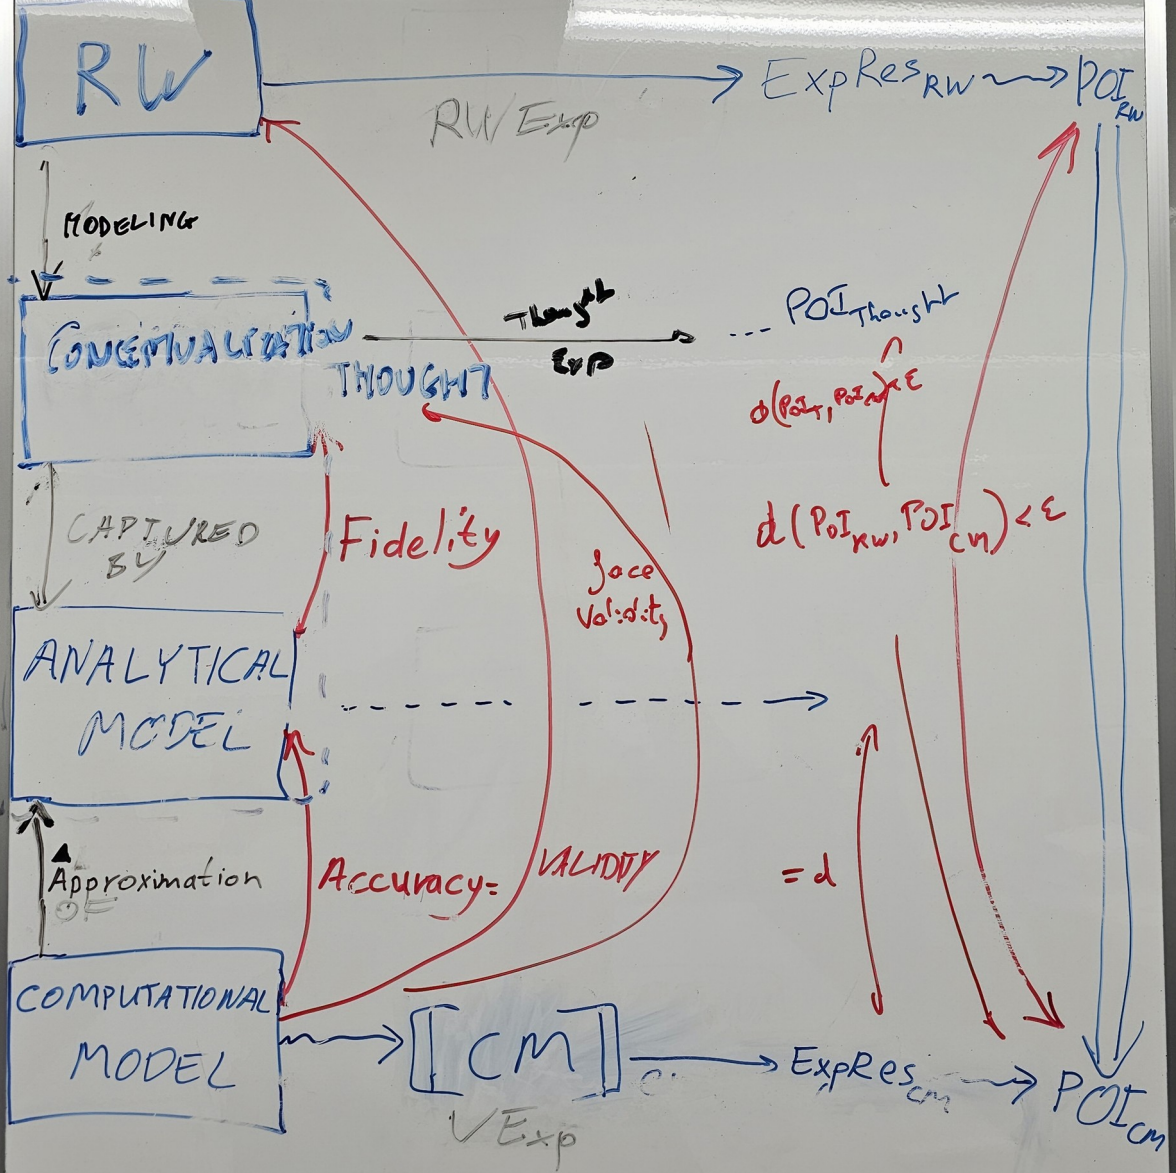 RW
RWExp
ExpRes RW
POI RW
MODELING
CONCEMUALIZATION
THOUGHT
Thought
Exp
POI Thought
d(POI T, POI CM) < ε
CAPTURED
BY
Fidelity
face
Validity
d(POI RW, POI CM) < ε
ANALYTICAL
MODEL
Approximation
OF
Accuracy =
VALIDITY
= d
COMPUTATIONAL
MODEL
[[CM]]
VExp
ExpRes CM
POI CM